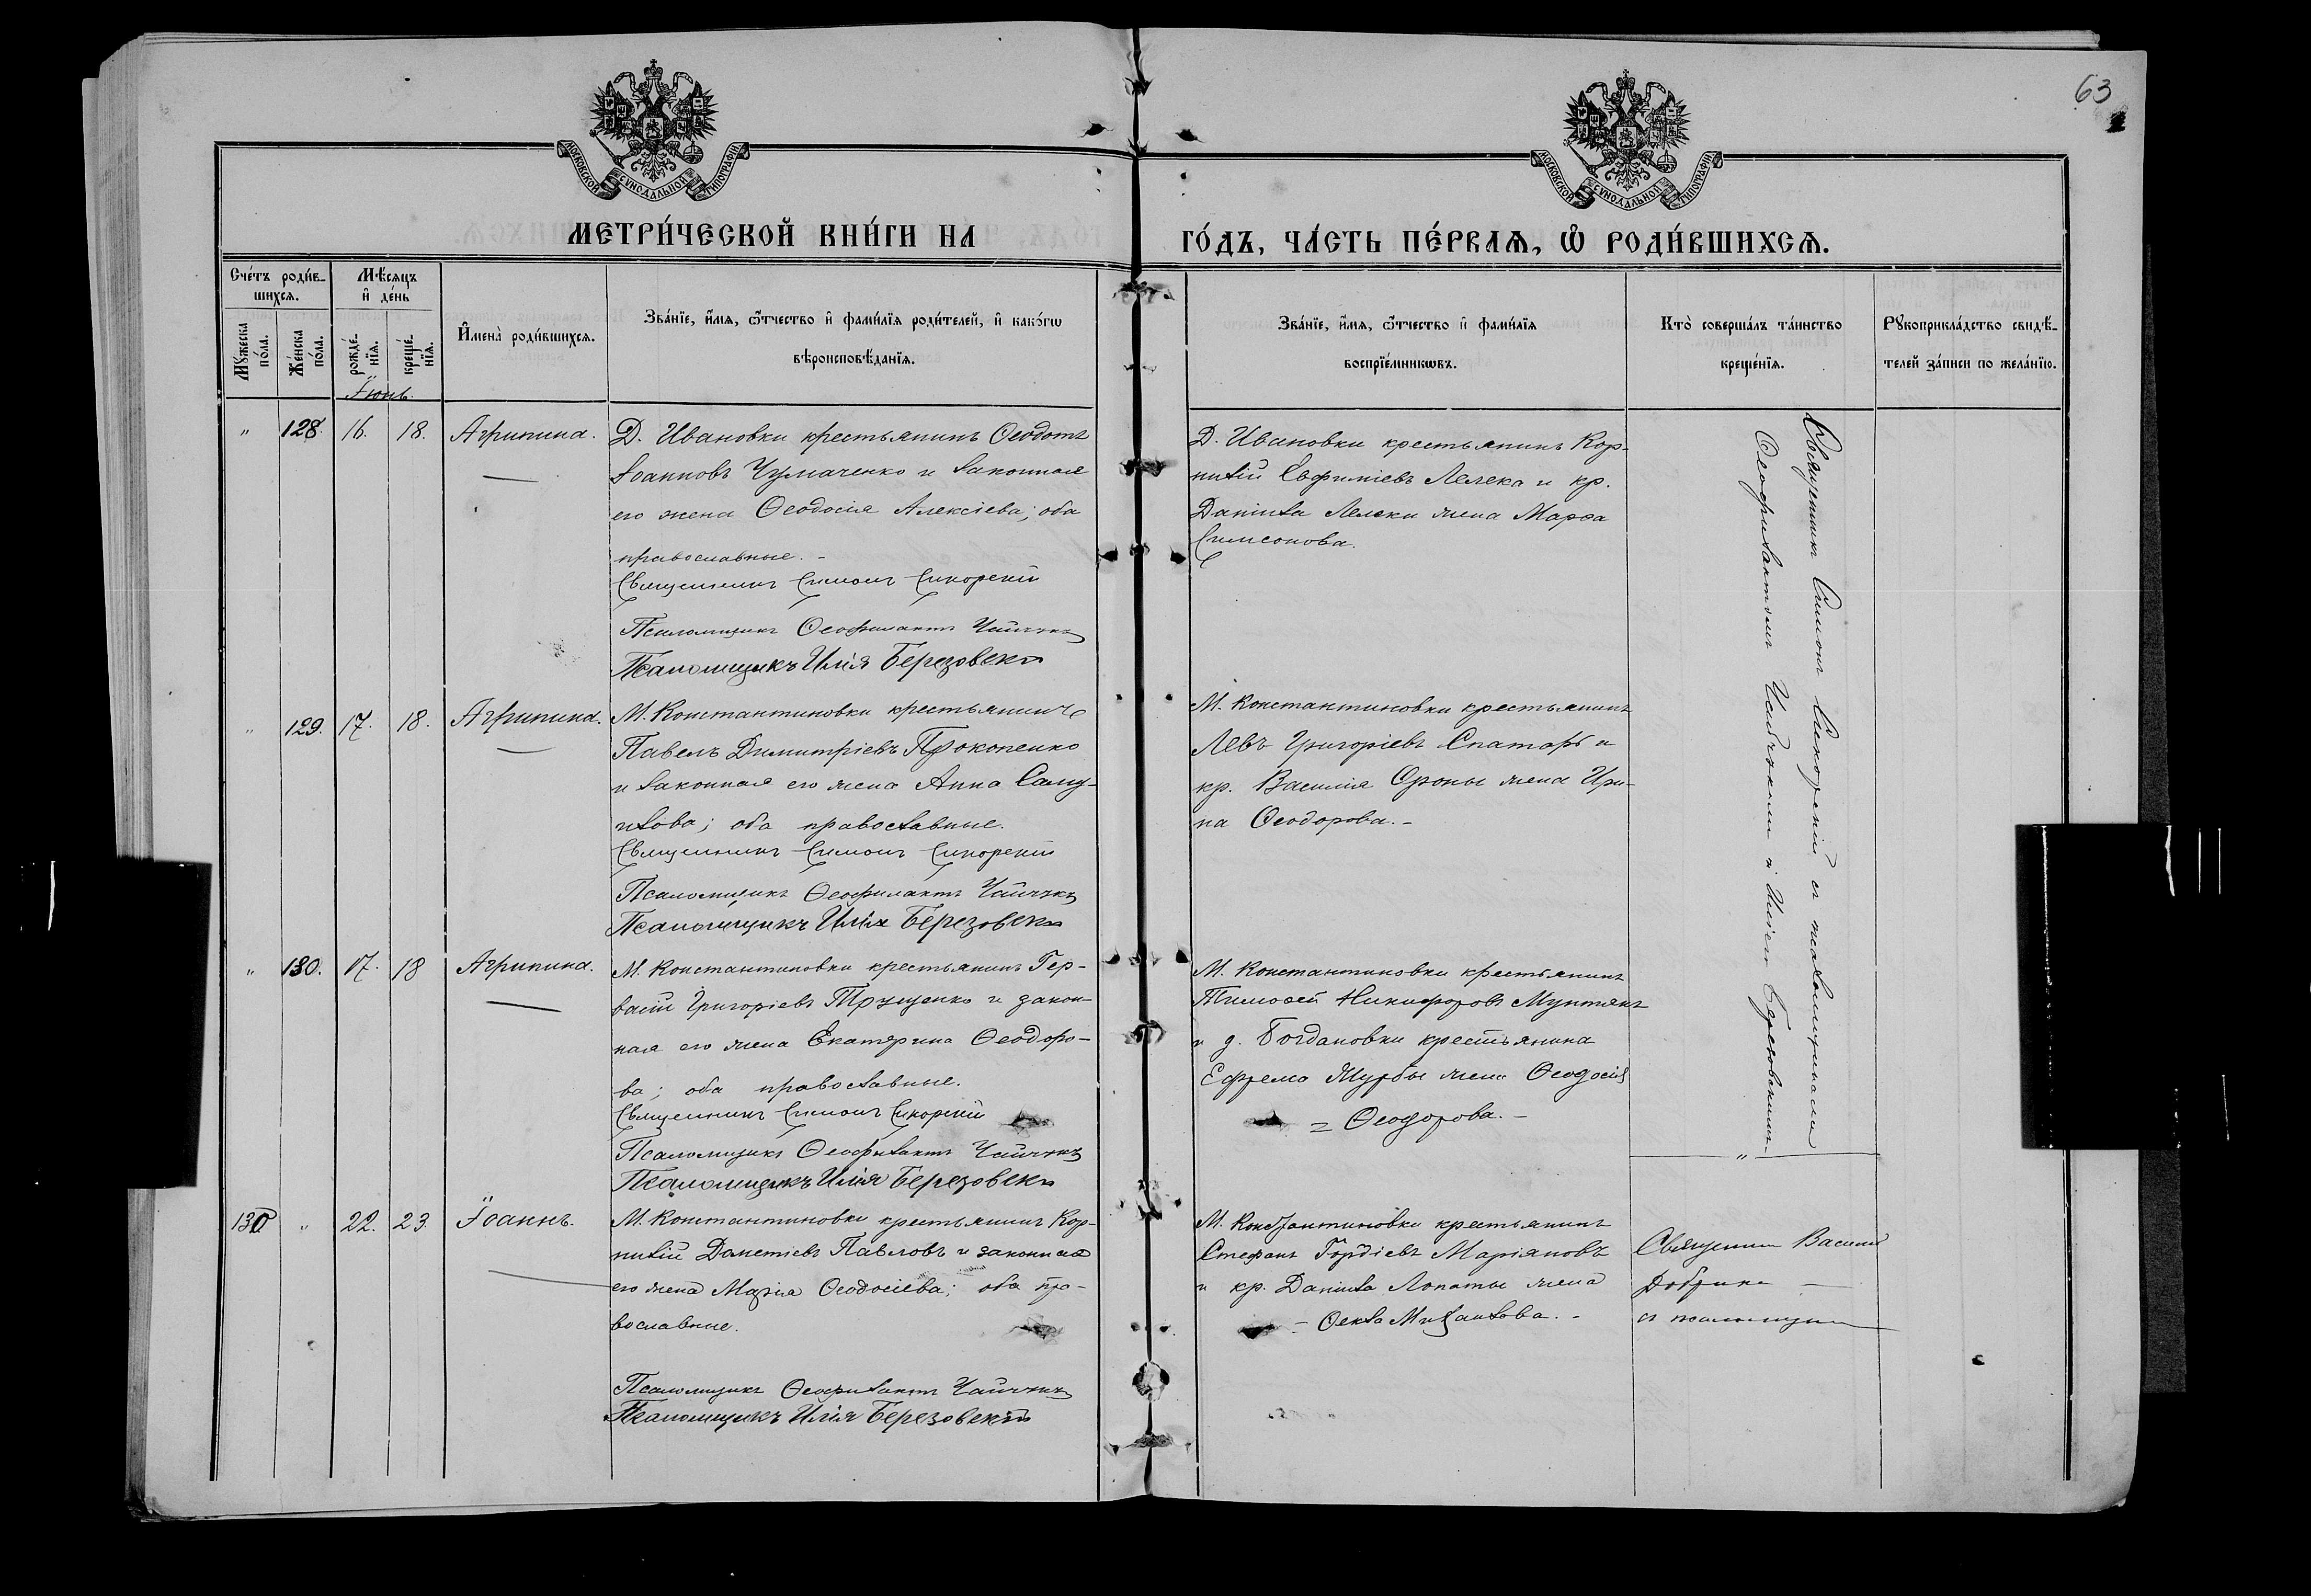 63
МОСКОВСКОЙ СѴНОДАЛЬНОЙ ТИПОГРАФІИ
МОСКОВСКОЙ СѴНОДАЛЬНОЙ ТИПОГРАФІИ
МЕТРИ́ЧЕСКОЙ КНИ́ГИ НА
ГО́ДЪ, ЧА́СТЬ ПЕ́РВАѦ, Ѿ РОДИ́ВШИХСѦ.
Сче́тъ роди́в-
шихсѧ.
Мѣ́сѧцъ
и҆ де́нь
Мꙋ́жеска по́ла.
Же́нска по́ла.
рожде́-
нїѧ.
креще́-
нїѧ.
И҆мена̀ роди́вшихсѧ.
Зва́нїе, и҆́мѧ, ѻ҆́тчество и҆ фами́лїѧ роди́телей, и҆ како́гѡ
вѣроисповѣ́данїѧ.
Зва́нїе, и҆́мѧ, ѻ҆́тчество и҆ фами́лїѧ
воспрїе́мникѡвъ.
Кто̀ соверша́лъ та́инство
креще́нїѧ.
Рꙋкоприкла́дство свидѣ́-
телей за́писи по жела́нїю.
Іюнь.
" 128. 16. 18. Агрипина.
Д. Ивановки крестьянинъ Ѳеодотъ
Іоанновъ Чумаченко и законная
его жена Ѳеодосія Алексіева; оба
православные. -
Священникъ Симонъ Сикорскій
Псаломщикъ Ѳеофилактъ Чайчукъ
Псаломщикъ Илія Березовскій
Д. Ивановки крестьянинъ Кор-
нилій Евфиміевъ Лелека и кр.
Даніила Лелеки жена Марѳа
Симеонова.
" 129. 17. 18. Агрипина.
М. Константиновки крестьянинъ
Павелъ Димитріевъ Прокопенко
и законная его жена Анна Саму-
илова; оба православные.
Священникъ Симонъ Сикорскій
Псаломщикъ Ѳеофилактъ Чайчукъ
Псаломщикъ Илія Березовскій
М. Константиновки крестьянинъ
Левъ Григоріевъ Спатарь и
кр. Василія жена Ири-
на Ѳеодорова. -
" 130. 17. 18 Агрипина.
М. Константиновки крестьянинъ Гер-
васій Григоріевъ Трущенко и закон-
ная его жена Екатерина Ѳеодоро-
ва; оба православные.
Священникъ Симонъ Сикорскій
Псаломщикъ Ѳеофилактъ Чайчукъ
Псаломщикъ Илія Березовскій
М. Константиновки крестьянинъ
Тимоѳей Никифоровъ Мунтянъ
и д. Богдановки крестьянина
Ефрема Журбы жена Ѳеодосія
= Ѳеодорова. -
Священникъ Симонъ Сикорскій съ псаломщиками
Ѳеофилактомъ Чайчукомъ и Иліею Березовскимъ.
"
130 " 22. 23. Іоаннъ.
М. Константиновки крестьянинъ Кор-
нилій Дометіевъ Павловъ и законная
его жена Марія Ѳеодосіева; оба пра-
вославные.
Псаломщикъ Ѳеофилактъ Чайчукъ
Псаломщикъ Илія Березовскій
М. Константиновки крестьянинъ
Стефанъ Гордіевъ Маріяновъ
и кр. Даніила Лопаты жена
- Ѳекла Михаилова. -
Священникъ Василій
съ псаломщик